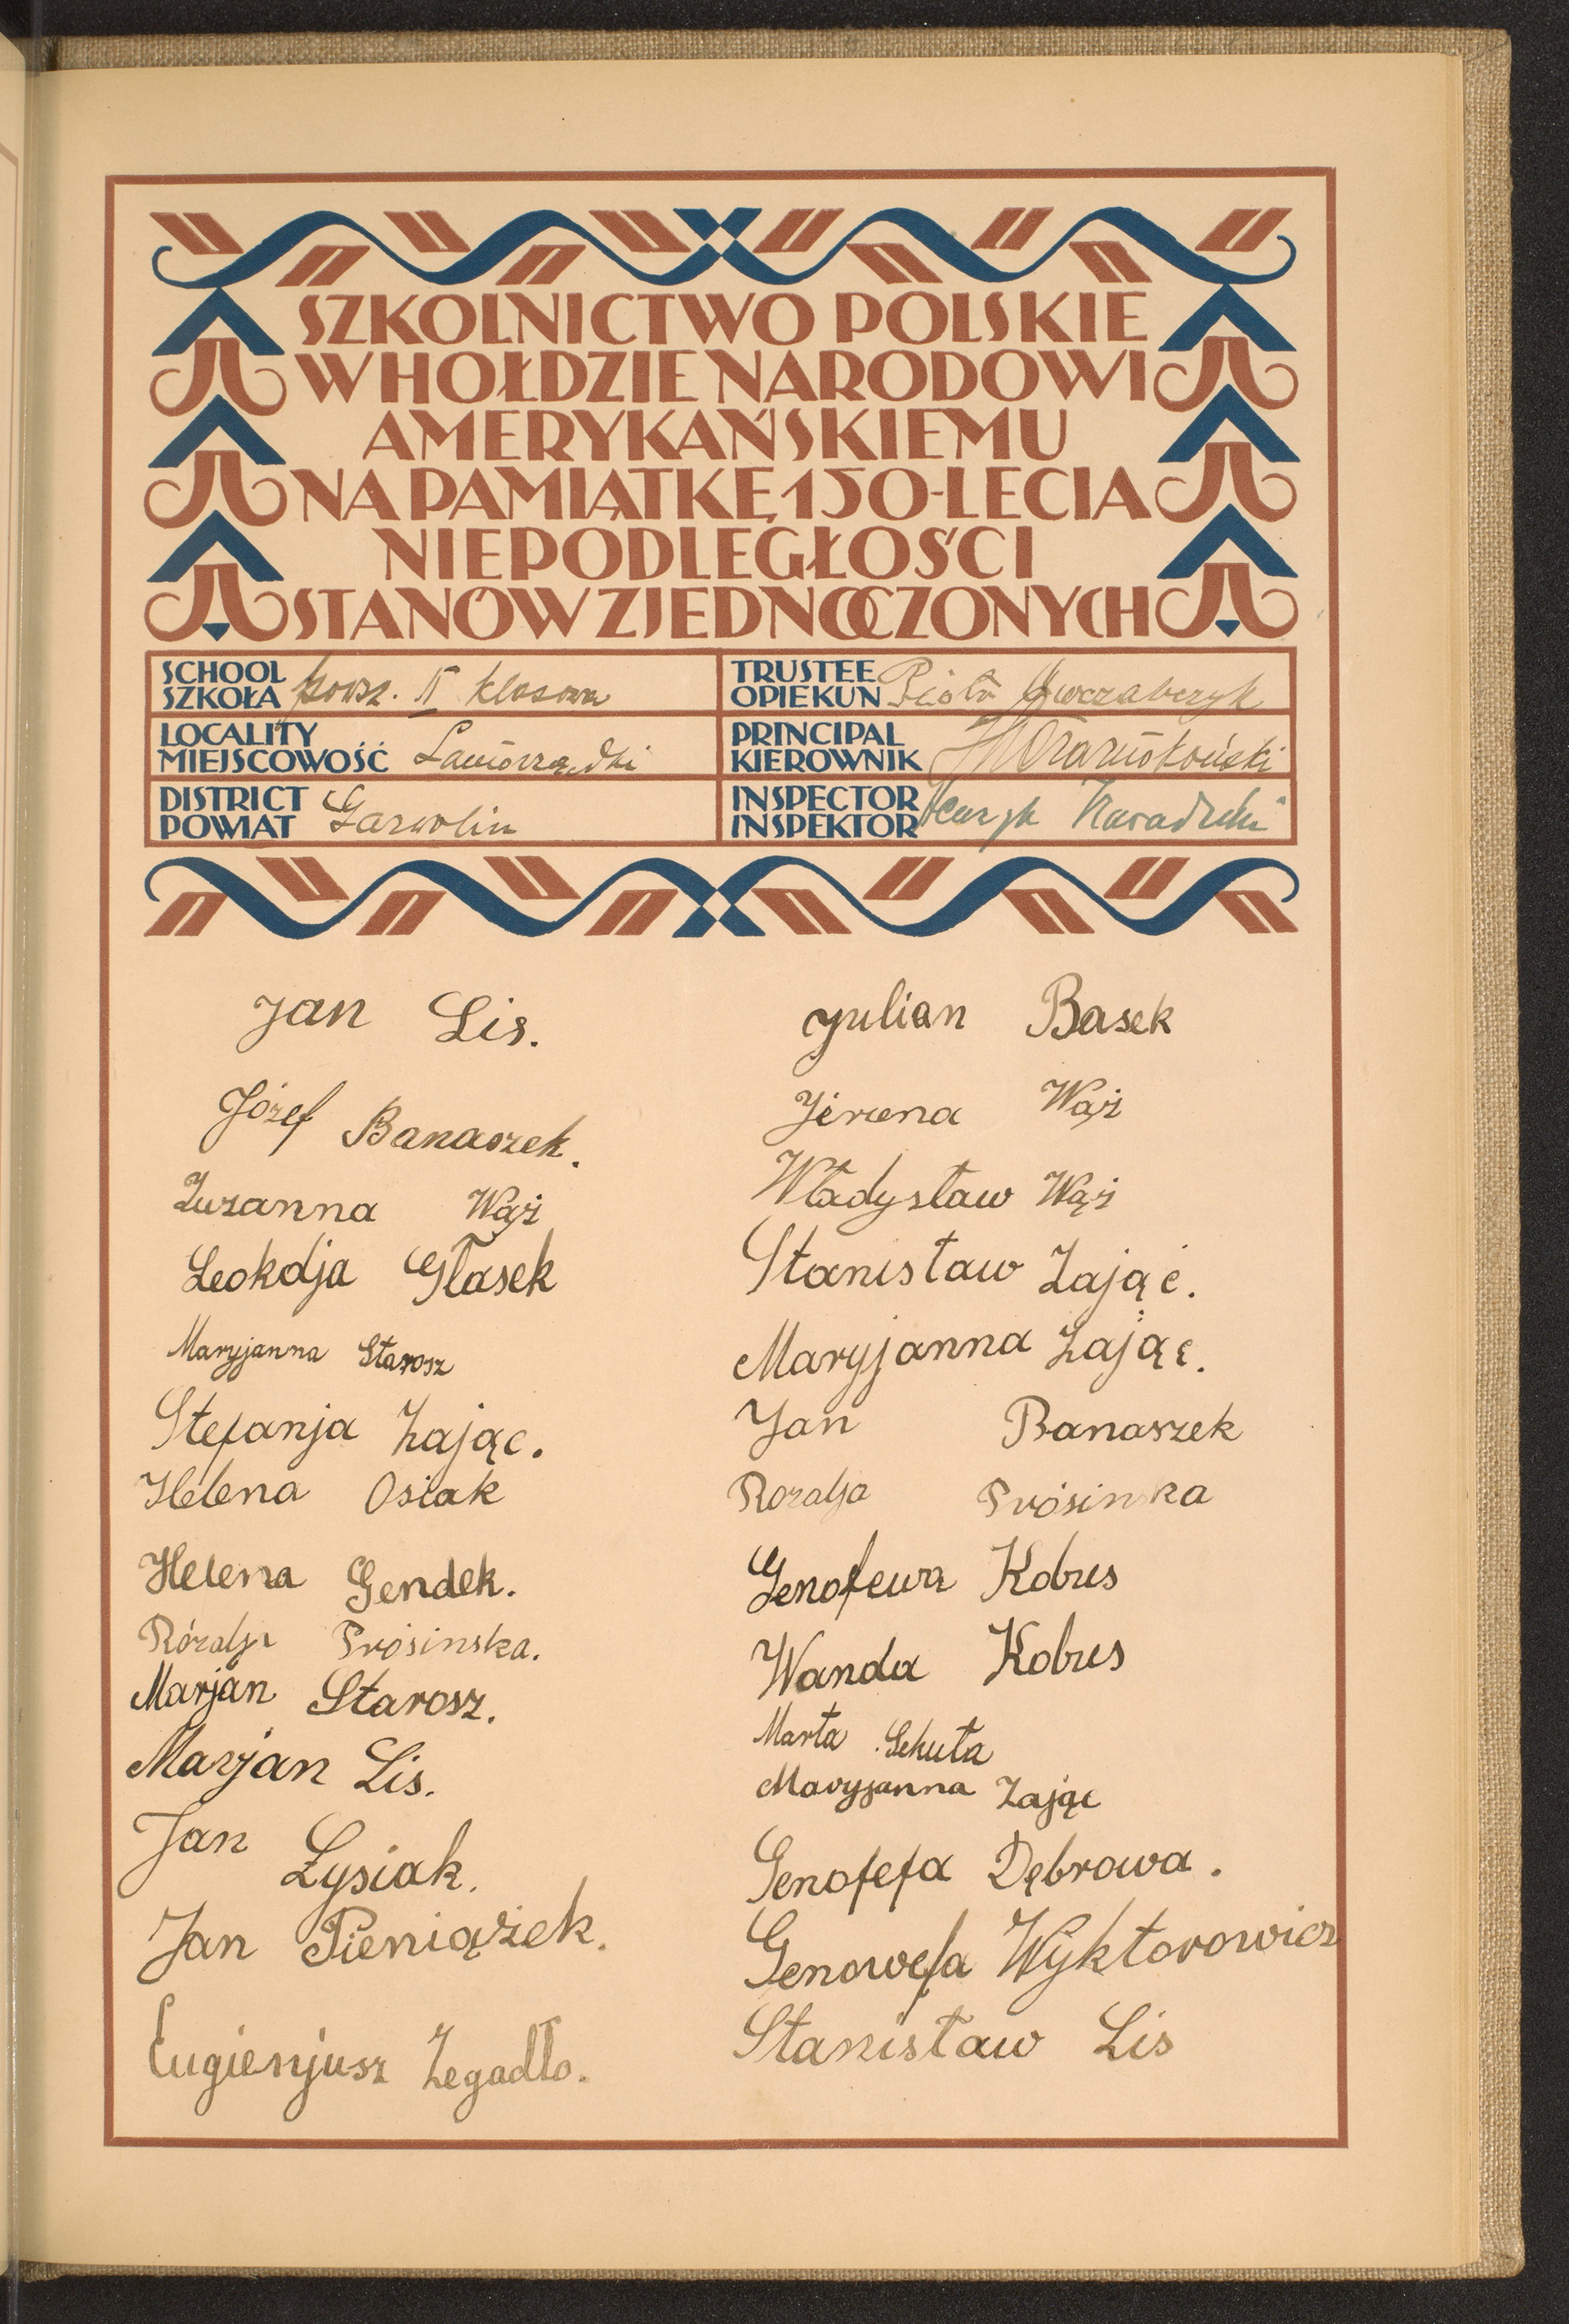 SZKOLNICTWO POLSKIE
W HOŁDZIE NARODOWI
AMERYKAŃSKIEMU
NA PAMIĄTKĘ 150-LECIA
NIEPODLEGŁOŚCI
STANÓW ZJEDNOCZONYCH
SCHOOL
SZKOŁA powsz. II klasowa
LOCALITY
MIEJSCOWOŚĆ Samorządki
DISTRICT
POWIAT Garwolin
TRUSTEE
OPIEKUN Piotr
PRINCIPAL
KIEROWNIK
INSPECTOR
INSPEKTOR Henryk
Jan Lis.
Józef Banaszek.
Zuzanna Wąż
Leokdja Głasek
Maryjanna Starosz
Stefanja Zając.
Helena Osiak
Helena Gendek.
Rózalja Prósinska.
Marjan Starosz.
Marjan Lis.
Jan Łysiak.
Jan Pieniążek.
Eugienjusz Zegadło.
Julian Basek
Jirena Wąż
Władysław Wąż
Stanisław Zająć.
Maryjanna Zając.
Jan Banaszek
Rozalja Prósinska
Genofewa Kobus
Wanda Kobus
Marta Sekuła
Maryjanna Zając
Genofefa Dębrowa.
Genowefa Wyktorowicz
Stanisław Lis